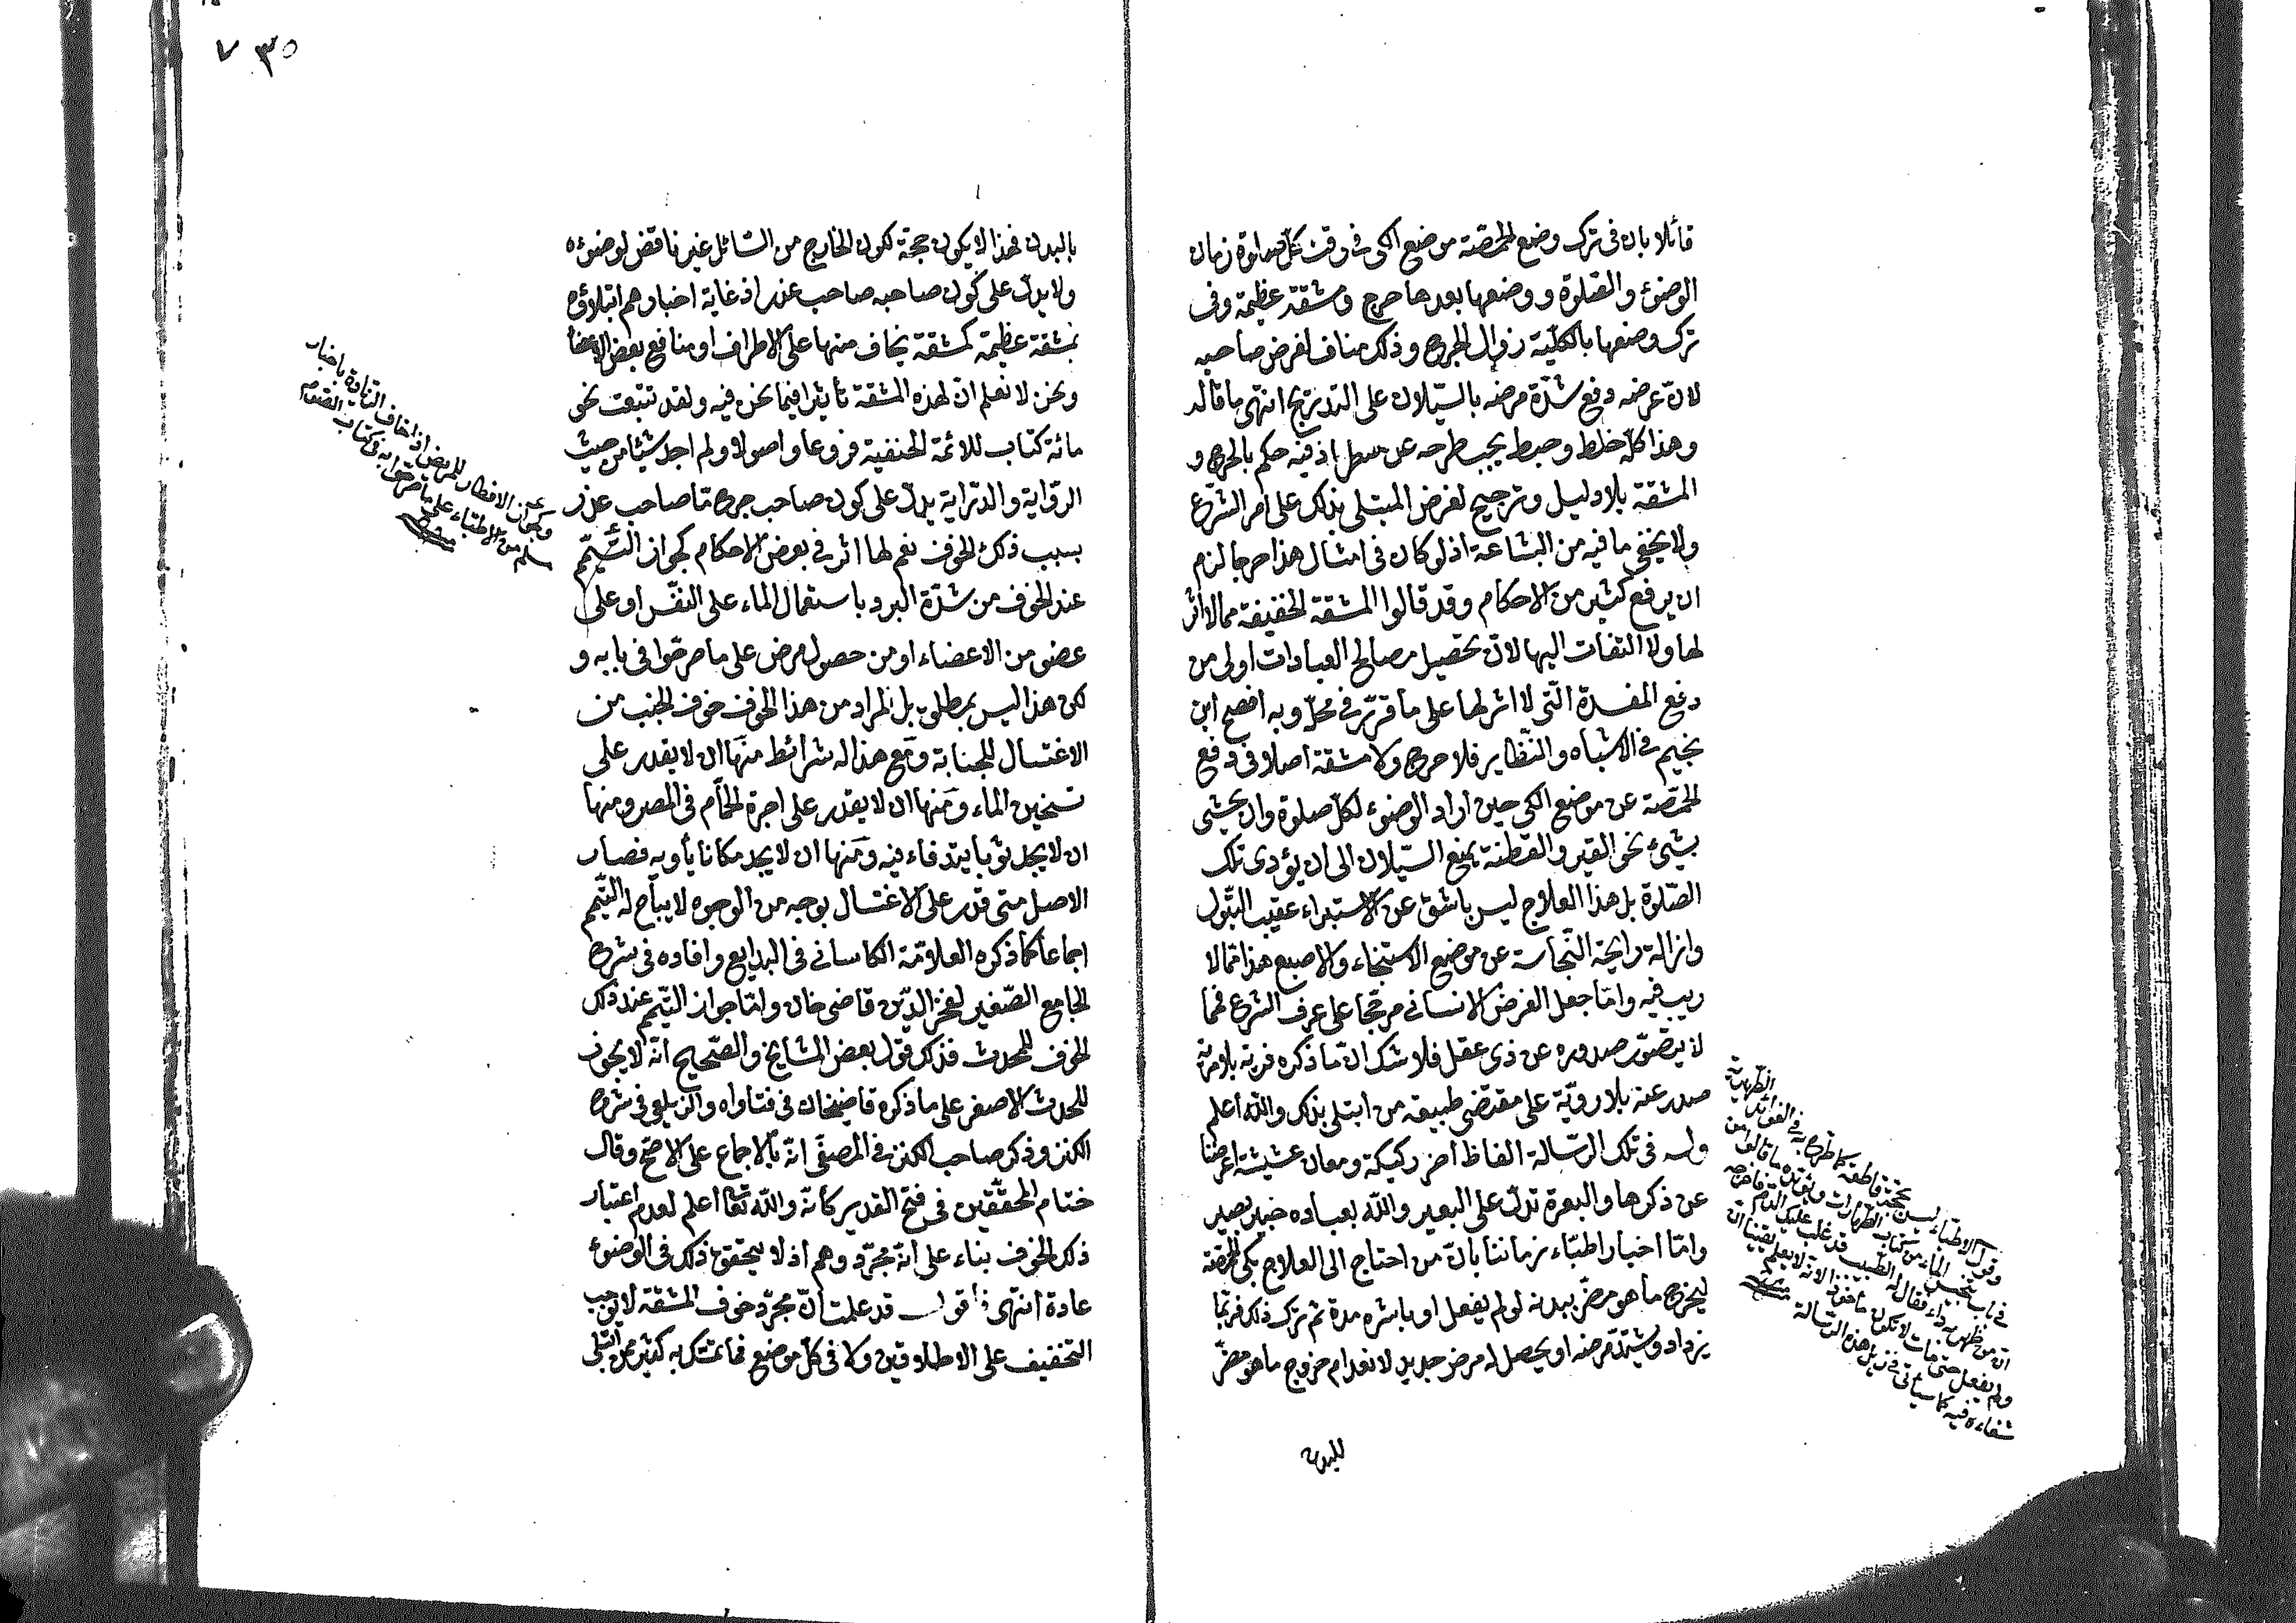 قائلا بان في ترك وضع الحمّصة موضع الكي في وقت كل صلوة زمان
الوضوء والصّلوة ووضعها بعدها حرج ومشقة عظيمة وفى
ترك وضعها بالكلّية زوال الجرح وذلك مناف لغرض صاحبه
لانّ غرضه دفع شدّة مرضه بالسّيلان على التدريج انتهى ما قاله
وهذا كلّه خلط وخبط يجب طرحه عن اذ فيه حكم بالحرج و
المشقة بلا دليل وترجيح لغرض المبتلى بذلك على امر الشرع
ولا يخفى ما فيه من البشاعة اذ لو كان في امثال هذا حرجا لزم
ان يرفع كثير من الاحكام وقد قالوا المشقة الخفيفة مما لا اثر
لها ولا التفات اليها لانّ تحصيل مصالح العبادات اولى من
دفع المفسدة الّتى لا اثر لها على ما قرّر في محلّه وبه افصح ابن
نجيم في الاشباه والنّظاير فلا حرج ولا مشقة اصلا في دفع
الحمّصة عن موضع الكي حين اراد الوضوء لكلّ صلوة وان يحشى
بشىء نحو القير والقطنة يمنع السّيلان الى ان يؤدى تلك
الصّلوة بل هذا العلاج ليس باشقّ عن الاستبراء عقيب البول
وازالة رايحة النّجاسة عن موضع الاستنجاء والاصبع هذا مّما لا
ريب فيه وامّا جعل الغرض الانسانى مرجّحا على عرف الشرع فمّما
لا يتصّور صدوره عن ذى عقل فلا شك انّ ما ذكره فرية بلا مرية
صدر عنه بلا رويّة على مقتضى طبيعة من ابتلى بذلك والله اعلم
وله فى تلك الرّسالة الفاظ اخر ركيكة ومعان اعرضنا
عن ذكرها والبعرة تدلّ على البعير والله بعباده خبير بصير
وامّا اخبار اطبّاء زماننا بانّ من احتاج الى العلاج بكى الحمّصة
ليخرج ما هو مضرّ ببدنه لو لم يفعل او باشره مدة ثم ترك ذلك فربّما
يزداد ويشتدّ مرضه او يحصل له مرض جديد لانعدام خروج ما هو مضرّ
للبدن
وقول الاطباء ليس بحجّة قاطعة كما صرّح به في الفوائد الظّهيرية
في باب الماء من كتاب الطّهارات ويؤيّده ما قالوا من
ان من ظهر به داء فقال له الطّبيب قد غلب عليك الدم فاخرجه
ولم يفعل حتى مات لا يكون مأخوذا لانّه لا يعلم يقينا انّ
شفاءه فيه كما سيأتى في ذيل هذه الرّسالة
٣٥ ٧
بالبدن فهذا لا يكون حجّة لكون الخارج من السّائل غير ناقض لوضوءه
ولا يدلّ على كون صاحبه صاحب عذر اذ غاية اخبارهم ابتلاؤه
بمشقة عظيمة كمشقة يخاف منها على الاطراف او منافع بعض الاعضا
ونحن لا نعلم انّ لهذه المشقة تأثيرا فيما نحن فيه ولقد تتبّعت نحو
مائة كتاب للائمّة الحنفية فروعا واصولا ولم اجد شيئا من حيث
الرّواية والدّراية يدلّ على كون صاحب جرح مّا صاحب عذر
بسبب ذلك الخوف نعم لها اثر في بعض الاحكام كجواز التّيمّم
عند الخوف من شدّة البرد باستعمال الماء على النفس او على
عضو من الاعضاء او من حصول مرض على ما صرّحوا فى بابه و
لكن هذا ليس بمطلوب بل المراد من هذا الخوف خوف الجنب من
الاغتسال للجنابة ومع هذا له شرائط منها ان لا يقدر على
تسخين الماء ومنها ان لا يقدر على اجرة الحمّام فى المصر ومنها
ان لا يجد ثوبا يتدفاء فيه ومنها ان لا يجد مكانا يأويه فصار
الاصل متى قدر على الاغتسال بوجه من الوجوه لا يباح له التّيمّم
اجماعا كما ذكره العلامّة الكاسانى فى البدايع وافاده فى شرح
الجامع الصّغير لفخر الدّين قاضى خان وامّا جواز التّيمّم عند ذلك
الخوف للمحدث فذلك قول بعض المشايخ والصّحيح انّه لا يجوز
للحدث الاصغر على ما ذكره قاضيخان فى فتاواه والزيلعى فى شرح
الكنز وذكر صاحب الكنز فى المصفّى انّه بالاجماع على الاصّح وقال
ختام المحقّقين فى فتح القدير كأنّه والله تعا اعلم لعدم اعتبار
ذلك الخوف بناء على انّه مجرّد وهم اذ لا يتحقق ذلك فى الوضوء
عادة انتهى اقول قد علمت انّ مجرّد خوف المشقة لا توجب
التخفيف على الاطلاق ولا فى كلّ موضع فما تمسّك به كثير من ابتلى
وعن الافطار للمريض اذا خاف الزيادة باخبار
مسلم من الاطباء على ما صرحوا به في كتاب الصّوم